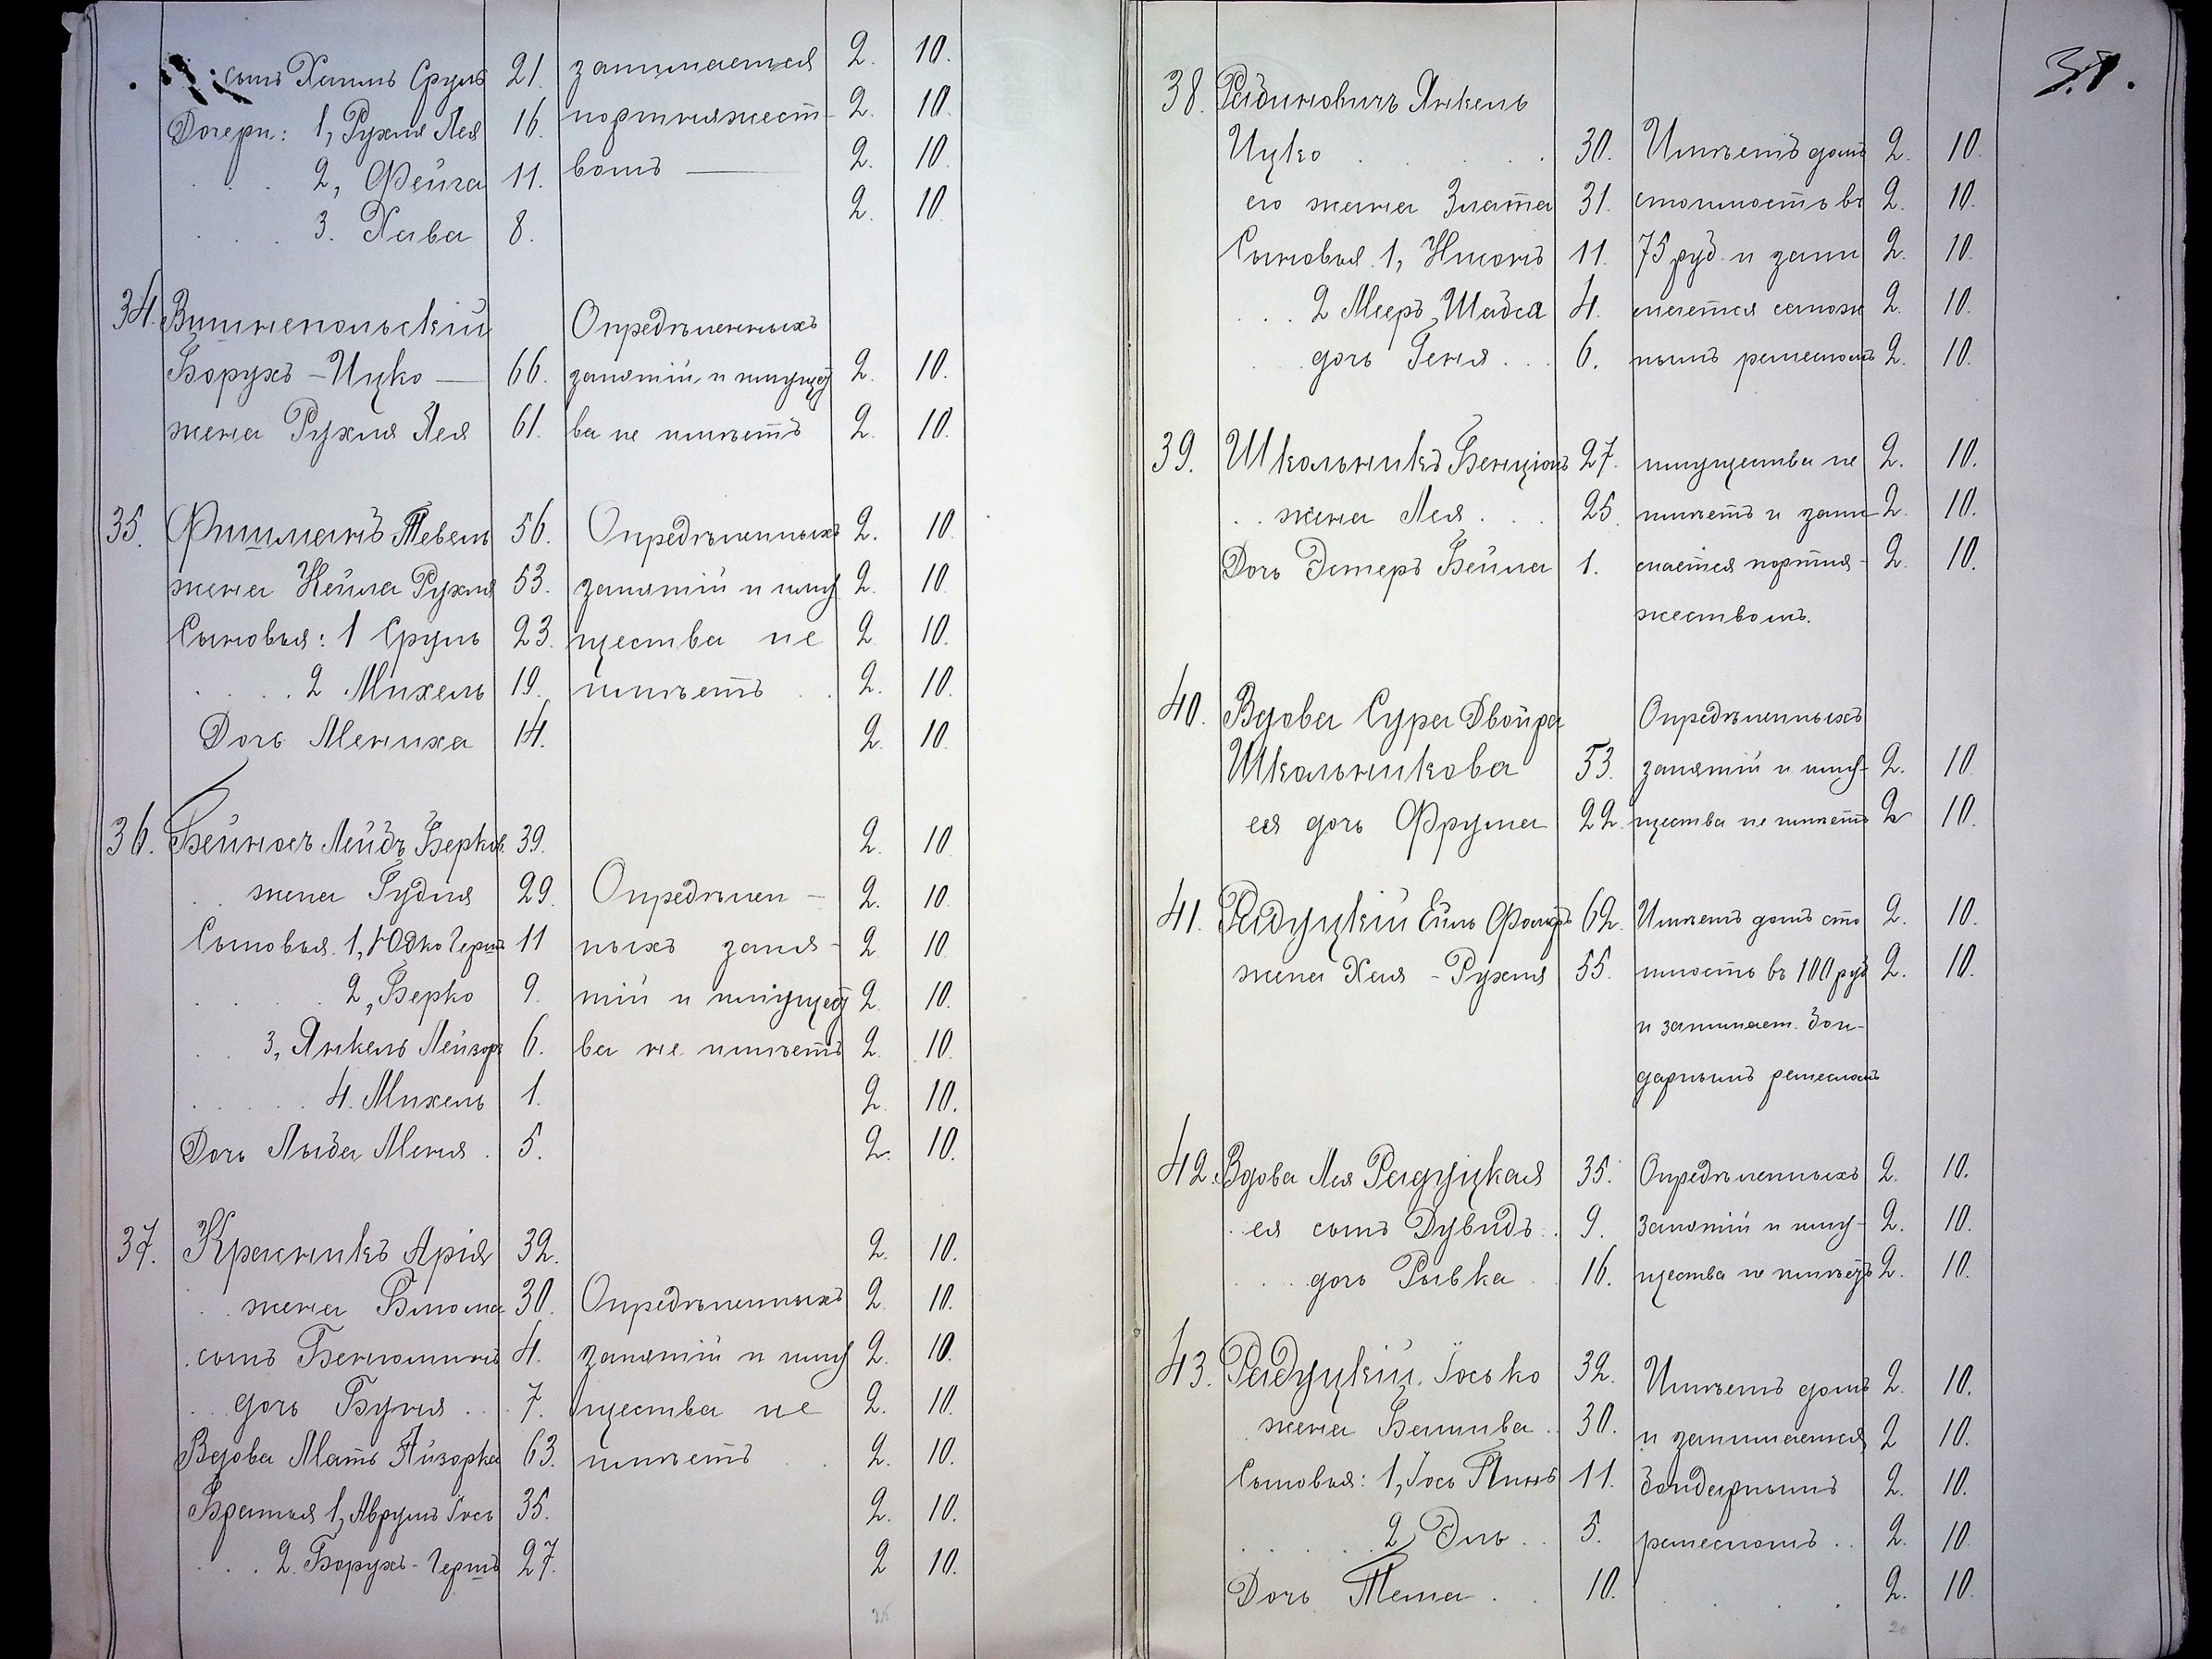 сынъ Хаимъ Сруль 21. занимается 2. 10.
Дочери: 1, Рухля Лея 16. портняжест- 2. 10.
2, Фейга 11. вомъ — 2. 10.
3. Хава 8. 2. 10.
34. Вишнепольскій Определенныхъ
Борухъ-Ицко — 66. занятій и имущест 2. 10.
жена Рухля Лея 61. ва не имѣетъ 2. 10.
35. Фишманъ Тевель 56. Определенныхъ 2. 10.
жена Нейла Рухля 53. занятій и иму 2. 10
Сыновья: 1 Сруль 23. щества не 2 10.
2 Михель 19. имѣетъ 2. 10.
Дочь Мениха 14. 2. 10.
36. Бейносъ Лейбъ Берков. 39. 2. 10
жена Гудля 29. Определен- 2. 10
Сыновья. 1, Юдко Герш 11 ныхъ заня- 2 10
2, Берко 9. тій и имущест 2 10.
3, Янкель Лейзоръ 6. ва не имѣетъ 2. 10.
4. Михель 1. 2. 10.
Дочь Лыба Меня. 5. 2. 10.
37. Красникъ Арія 32. 2. 10.
жена Блюма 30. Определенныхъ 2. 10.
сынъ Беніоминъ 4. занятій и иму 2. 10.
дочь Буня 7. щества не 2. 10.
Вдова Мать 63. имѣетъ 2. 10.
Братья 1, Аврумъ Іось 35. 2. 10.
2. Борухъ-Гершъ 27. 2 10.
38. Рабиновичъ Янкель
Ицко 30. Имѣетъ домъ 2. 10.
его жена Злата 31. стоимость въ 2. 10.
Сыновья. 1, Нисонъ 11. 75 руб. и зани 2. 10.
2 Мееръ Шабса 4. мается сапож 2. 10.
дочь Геня 6. нымъ ремесломъ 2. 10.
39. Школьникъ Бенціонъ 27. имущества не 2. 10.
жена Лея 25. имѣетъ и зани- 2. 10.
Дочь Эстеръ Бейла 1. мается портня- 2. 10.
жествомъ.
40. Вдова Сура Двойра Определенныхъ
Школьникова 53. занятій и иму- 2. 10.
ея дочь Фрума 22. щества не имѣетъ 2 10.
41. Радуцкій Ейль 62. Имѣетъ домъ сто 2. 10.
жена Хая-Рухля 55. имость въ 100 руб 2. 10.
и занимает. бон-
дарнымъ ремесломъ
42. Вдова Лея Радуцкая 35. Определенныхъ 2. 10.
ея сынъ Дувидъ 9. занятій и иму- 2. 10.
дочь Рывка 16. щества не имѣетъ 2. 10.
43. Радуцкій. Іосько 32. Имѣетъ домъ 2. 10.
жена Башива 30. и занимается 2 10.
Сыновья: 1, Іось Пинь 11. бондарнымъ 2. 10.
2, Эль 5. ремесломъ 2. 10
Дочь Тема 10. 2. 10.